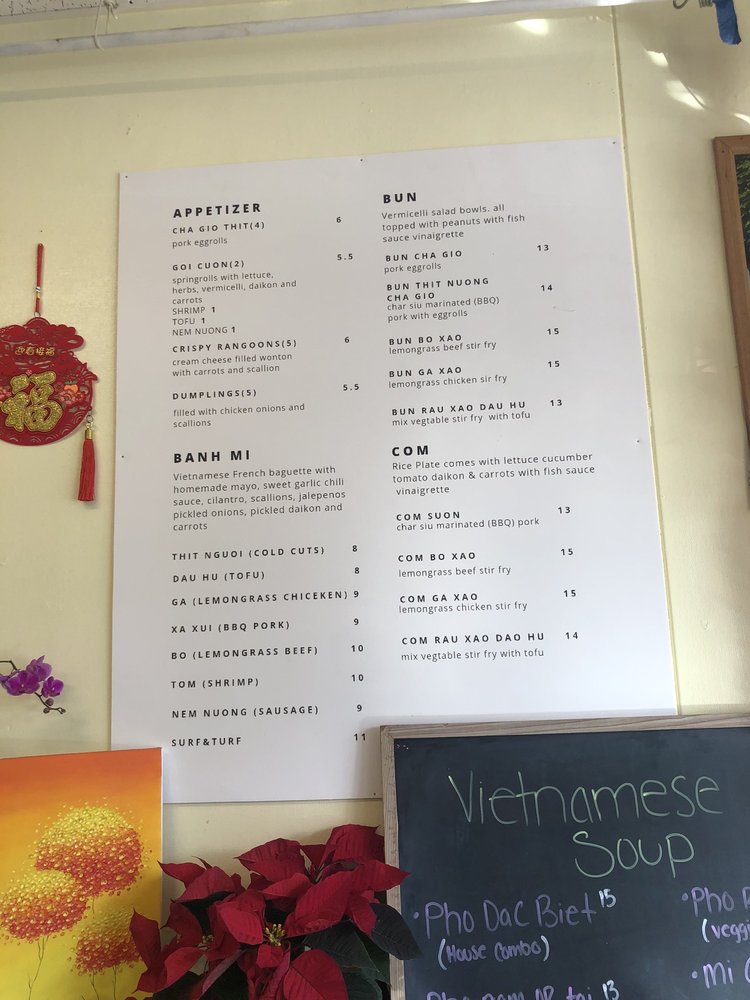 APPETIZER
CHA GIO THIT(4) 6
pork eggrolls
GOI CUON(2) 5.5
springrolls with lettuce,
herbs, vermicelli, daikon and
carrots
SHRIMP 1
TOFU 1
NEM NUONG 1
CRISPY RANGOONS(5) 6
cream cheese filled wonton
with carrots and scallion
DUMPLINGS(5) 5.5
filled with chicken onions and
scallions
BANH MI
Vietnamese French baguette with
homemade mayo, sweet garlic chili
sauce, cilantro, scallions, jalepenos
pickled onions, pickled daikon and
carrots
THIT NGUOI (COLD CUTS) 8
DAU HU (TOFU) 8
GA (LEMONGRASS CHICEKEN) 9
XA XUI (BBQ PORK) 9
BO (LEMONGRASS BEEF) 10
TOM (SHRIMP) 10
NEM NUONG (SAUSAGE) 9
SURF&TURF 11
BUN
Vermicelli salad bowls. all
topped with peanuts with fish
sauce vinaigrette
BUN CHA GIO 13
pork eggrolls
BUN THIT NUONG
CHA GIO 14
char siu marinated (BBQ)
pork with eggrolls
BUN BO XAO 15
lemongrass beef stir fry
BUN GA XAO 15
lemongrass chicken sir fry
BUN RAU XAO DAU HU 13
mix vegtable stir fry with tofu
COM
Rice Plate comes with lettuce cucumber
tomato daikon & carrots with fish sauce
vinaigrette
COM SUON 13
char siu marinated (BBQ) pork
COM BO XAO 15
lemongrass beef stir fry
COM GA XAO 15
lemongrass chicken stir fry
COM RAU XAO DAO HU 14
mix vegtable stir fry with tofu
迎春接福
福
Vietnamese
Soup
•Pho Dac Biet 15
(House Combo)
•Pho
(vegg
•Mi